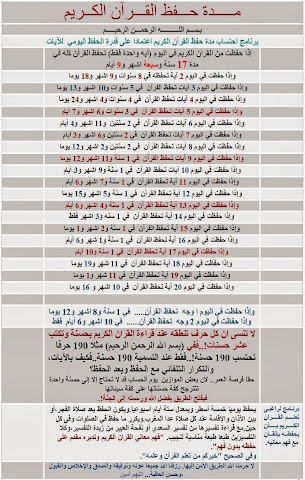 مـــدة حـــفظ القــرآن الكــريم
بـسـم اللــــه الرحمــن الرحيــــم
برنامج احتساب مدة حفظ القرآن الكريم اعتمادا على قدرة الحفظ اليومي للآيات
إذا حفظت من القرآن الكريم في اليوم (آيه واحدة فقط) تحفظ القرآن كله في
مدة 17 سنة وسبعة اشهر و9 أيام
وإذا حفظت في اليوم 2 آية تحفظه في 8 سنوات و9 اشهر و18 يوما
وإذا حفظت في اليوم 3 آيات تحفظ القرآن في 5 سنوات و10 اشهر و13 يوما
وإذا حفظت في اليوم 4 آيات تحفظ القرآن في 4 سنوات و4 اشهر و24 يوما
وإذا حفظت في اليوم 5 آيات تحفظ القرآن في 3 سنوات و6 اشهر و6 أيام
وإذا حفظت في اليوم 6 آيات تحفظ القرآن في 2 سنتين و11 اشهر و4 أيام
وإذا حفظت في اليوم 7 آيات تحفظ القرآن في 2 سنتين و6 اشهر و3 أيام
وإذا حفظت في اليوم 8 آيات تحفظ القرآن في 2 سنتين و2 شهر و12 يوما
وإذا حفظت في اليوم 9 آيات تحفظ القرآن في 1 سنة و11 اشهر و12 يوما
وإذا حفظت في اليوم 10 آيات تحفظ القرآن في 1 سنة و9 اشهر و3 أيام
وإذا حفظت في اليوم 11 آية تحفظ القرآن في 1 سنة و7 اشهر و6 أيام
وإذا حفظت في اليوم 12 آية تحفظ القرآن في 1 سنة و5 اشهر و15 يوما
وإذا حفظت في اليوم 13 آية تحفظ القرآن في 1 سنة و4 اشهر و6 أيام
وإذا حفظت في اليوم 14 آية تحفظ القرآن في 1 سنة و3 اشهر فقط
وإذا حفظت في اليوم 15 آية تحفظ القرآن في 1 سنة و2 شهر و1 يوما
وإذا حفظت في اليوم 16 آية تحفظ القرآن في 1 سنة و1 شهر و6 أيام
وإذا حفظت في اليوم 17 آية تحفظ القرآن في 1 سنة و10 أيام
وإذا حفظت في اليوم 18 آية تحفظ القرآن في 11 شهر و19 يوما
وإذا حفظت في اليوم 19 آية تحفظ القرآن في 11 شهر و1 يوما
وإذا حفظت في اليوم 20 آية تحفظ القرآن في 10 اشهر و16 يوما
وإذا حفظت في اليوم 1 وجه تحفظ القرآن...... في 1 سنة و8 اشهر و12 يوما
وإذا حفظت في اليوم 2 وجه تحفظ القرآن...... في 10 اشهر و6 أيام فقط
لا تنسى ان كل حرف تنطقه عند قراءة القرآن الكريم بحسنة وتكتب
عشر حسنات!..ففي (بسم الله الرحمن الرحيم) مثلا 190 حرفا
تحتسب 190 حسنة!..فقط عند التسمية 190 حسنة..فكيف بالآيات،
والتكرار التلقائي مع الحفظ وبعد الحفظ؟
حقا فرصة العمر.. لان بعض الموازين يوم الحساب قد لا تحتاج إلا إلى حسنة واحدة
لتترجح كفة حسناتها على كفة سيئاتها
فيفتح الطريق بفضل الله ورحمته إلى الجنة!.
"فهم معاني القرآن الكريم وتدبره مقدم على
حفظه بدون فهم".
وفي الصحيح "خيركم من تعلم القرآن وعلمه".
برنامج لراغبي
تعلم القرآن
الكريم بـأن
يحفظه بإتقان
مع فهم معانيه.